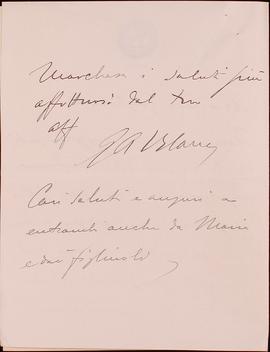 Marchesa i saluti più
affettuosi dal tuo
aff
Cari saluti e auguri a
entrambi anche da Maria
e dai figliuoli